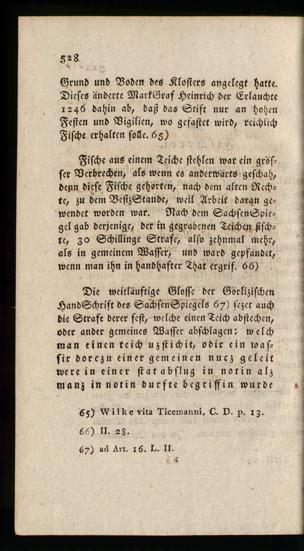 528
Grund und Boden des Klosters angelegt hatte.
Dieses änderte MarkGraf Heinrich der Erlauchte
1246 dahin ab, daß das Stift nur an hohen
Festen und Vigilien, wo gefastet wird, reichlich
Fische erhalten solle. 65)
Fische aus einem Teiche stehlen war ein grös-
ser Verbrechen, als wenn es anderwärts geschah,
denn diese Fische gehörten, nach dem alten Rech-
te, zu dem BesizStande, weil Arbeit daran ge-
wendet worden war. Nach dem SachsenSpie-
gel gab derjenige, der in gegrabenen Teichen fisch-
te, 30 Schillinge Strafe, also zehnmal mehr,
als in gemeinem Wasser, und ward gepfändet,
wenn man ihn in handhafter That ergrif. 66)
Die weitläuftige Glosse der Görlizischen
HandSchrift des SachsenSpiegels 67) sezet auch
die Strafe derer fest, welche einen Teich abstechen,
oder ander gemeines Wasser abschlagen: welch
man einen teich uzstichit, odir ein was-
sir dorczu einer gemeinen nucz geleit
were in einer stat abslug in notin alz
manz in notin durfte begriffin wurde
65) Wilke vita Ticemanni, C. D. p. 13.
66) II. 28.
67) ad Art. 16. L. II.